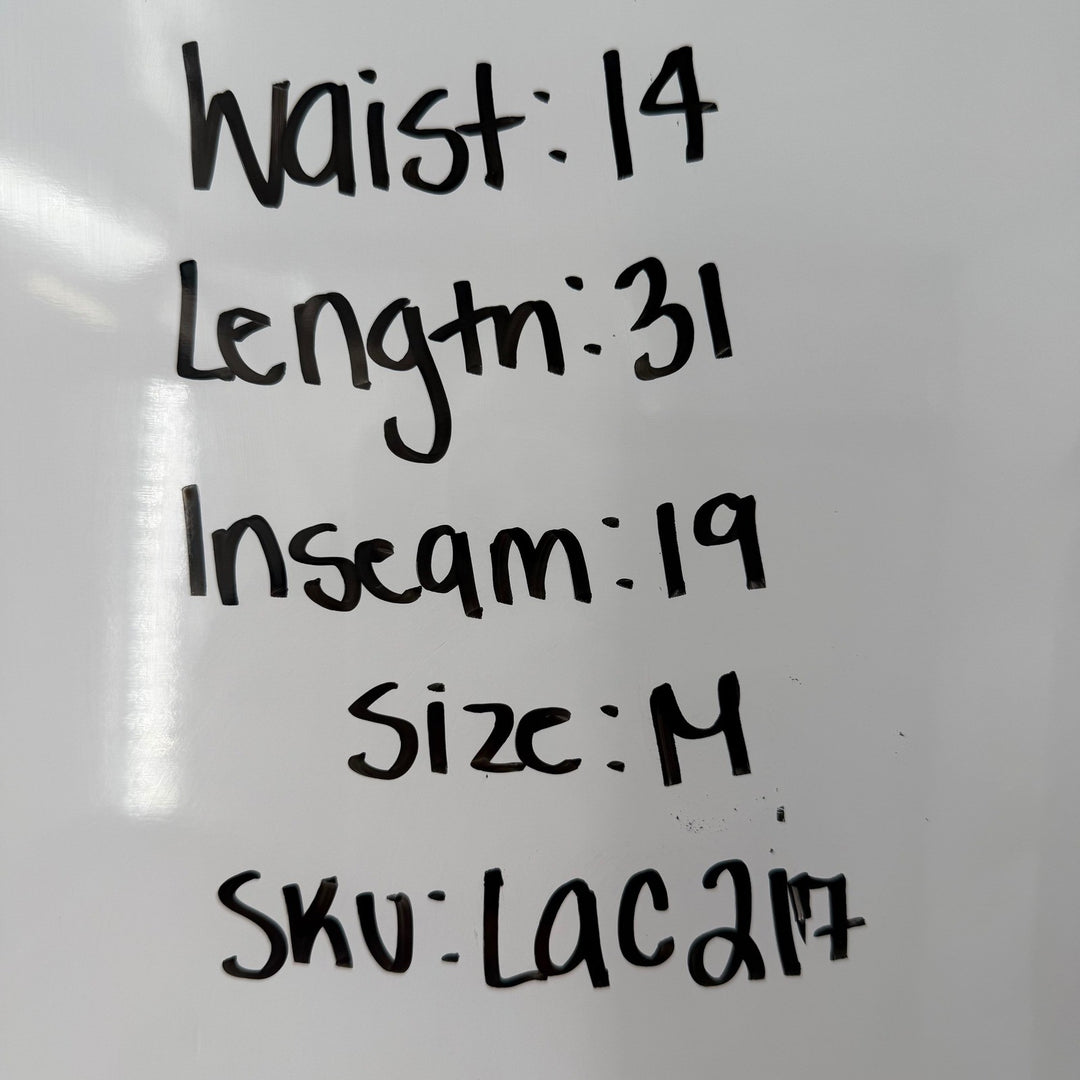 Waist: 14
Length: 31
Inseam: 19
Size: M
SKU: Lac217